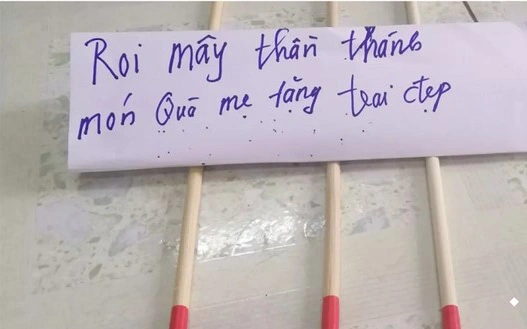 Roi mây thần thánh
món Quà mẹ tặng trai đẹp